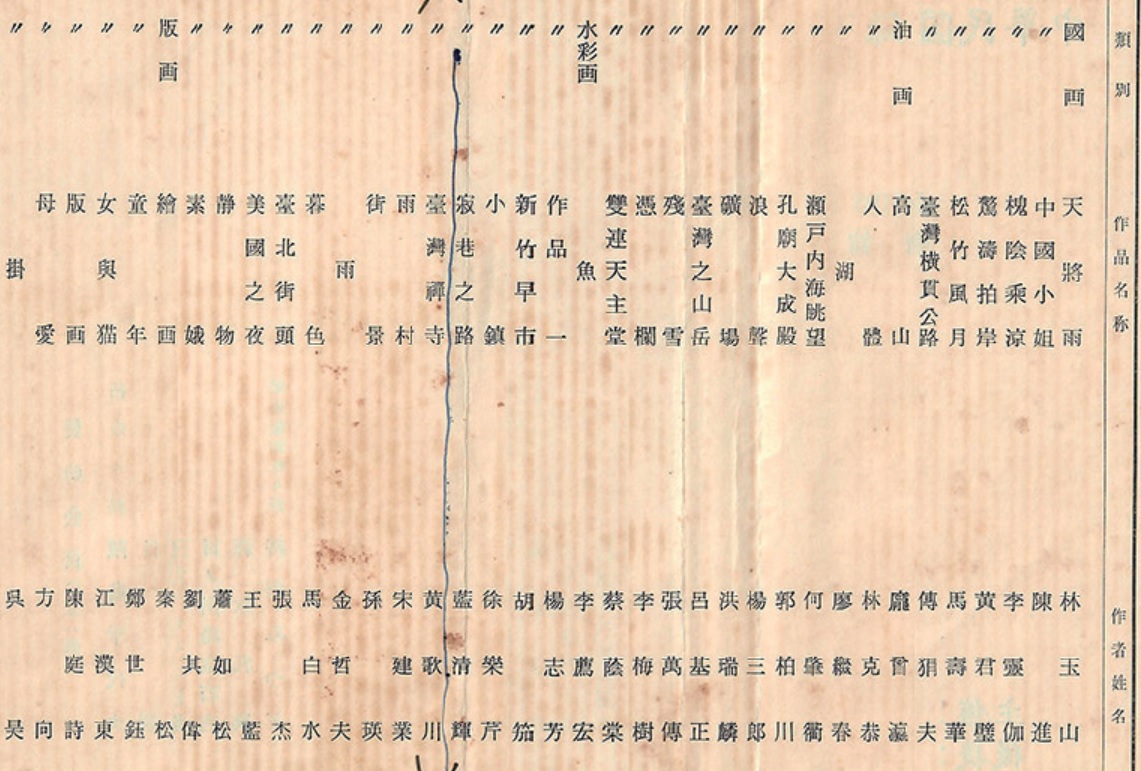 類別 作品名称 作者姓名
國画 天將雨 林玉山
〃 中國小姐 陳進
〃 槐陰乘涼 李靈伽
〃 驚濤拍岸 黃君璧
〃 松竹風月 馬壽華
〃 臺灣橫貫公路 傅狷夫
油画 高山 龐曾瀛
〃 人體 林克恭
〃 湖 廖繼春
〃 瀨戶内海眺望 何肇衢
〃 孔廟大成殿 郭柏川
〃 浪聲 楊三郎
〃 礦場 洪瑞麟
〃 臺灣之山岳 呂基正
〃 殘雪 張萬傳
〃 憑欄 李梅樹
〃 雙連天主堂 蔡蔭棠
水彩画 魚 李薦宏
〃 作品一 楊志芳
〃 新竹早市 胡笳
〃 小鎮 徐樂芹
〃 寂巷之路 藍清輝
〃 臺灣禪寺 黃歌川
〃 雨村 宋建業
〃 街景 孫瑛
〃 雨 金哲夫
〃 暮色 馬白水
〃 臺北街頭 張杰
〃 美國之夜 王藍
〃 静物 蕭如松
〃 素娥 劉其偉
版画 繪画 秦松
〃 童年 鄭世鈺
〃 女與猫 江漢東
〃 版画 陳庭詩
〃 母愛 方向
〃 掛 吳昊